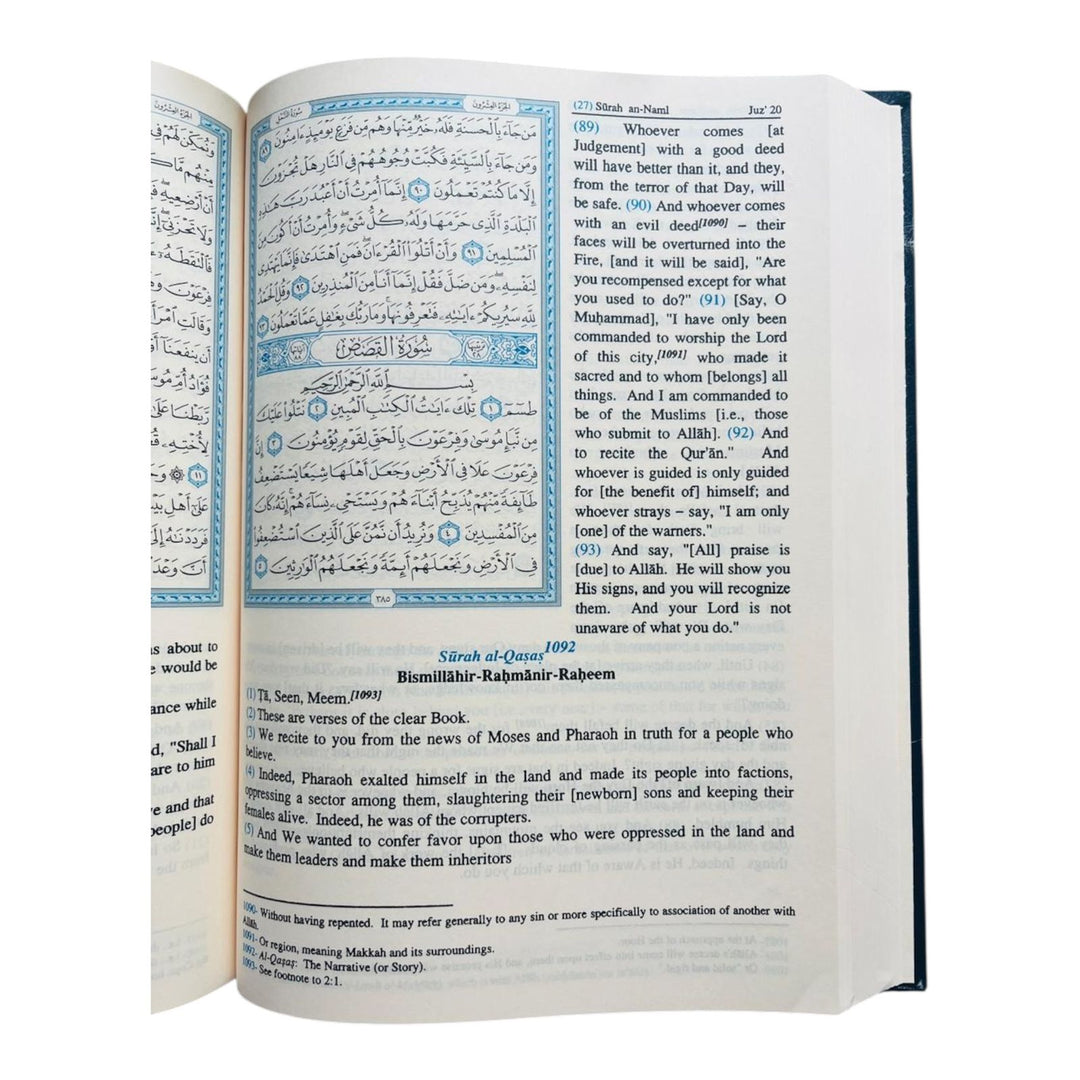 وَنُمَكِّنَ لَهُمْ فِي
أَنْ أَرْضِعِيهِ
وَقَالَتِ
فَرَدَدْنَاهُ إِلَىٰ
أَنَّ وَعْدَ
s about to
e would be
ance while
d, "Shall I
are to him
ve and that
people] do
الجزء العشرون
سورة النمل
مَن جَاءَ بِالْحَسَنَةِ فَلَهُ خَيْرٌ مِّنْهَا وَهُم مِّن فَزَعٍ يَوْمَئِذٍ ءَامِنُونَ ٨٩
وَمَن جَاءَ بِالسَّيِّئَةِ فَكُبَّتْ وُجُوهُهُمْ فِي النَّارِ هَلْ تُجْزَوْنَ
إِلَّا مَا كُنتُمْ تَعْمَلُونَ ٩٠ إِنَّمَا أُمِرْتُ أَنْ أَعْبُدَ رَبَّ هَٰذِهِ
الْبَلْدَةِ الَّذِي حَرَّمَهَا وَلَهُ كُلُّ شَيْءٍ وَأُمِرْتُ أَنْ أَكُونَ مِنَ
الْمُسْلِمِينَ ٩١ وَأَنْ أَتْلُوَا الْقُرْءَانَ فَمَنِ اهْتَدَىٰ فَإِنَّمَا يَهْتَدِي
لِنَفْسِهِ وَمَن ضَلَّ فَقُلْ إِنَّمَا أَنَا مِنَ الْمُنذِرِينَ ٩٢ وَقُلِ الْحَمْدُ
لِلَّهِ سَيُرِيكُمْ ءَايَاتِهِ فَتَعْرِفُونَهَا وَمَا رَبُّكَ بِغَافِلٍ عَمَّا تَعْمَلُونَ ٩٣
سُورَةُ القَصَصِ
بِسْمِ اللَّهِ الرَّحْمَٰنِ الرَّحِيمِ
طسٓمٓ ١ تِلْكَ ءَايَاتُ الْكِتَابِ الْمُبِينِ ٢ نَتْلُوا عَلَيْكَ
مِن نَّبَإِ مُوسَىٰ وَفِرْعَوْنَ بِالْحَقِّ لِقَوْمٍ يُؤْمِنُونَ ٣ إِنَّ
فِرْعَوْنَ عَلَا فِي الْأَرْضِ وَجَعَلَ أَهْلَهَا شِيَعًا يَسْتَضْعِفُ
طَائِفَةً مِّنْهُمْ يُذَبِّحُ أَبْنَاءَهُمْ وَيَسْتَحْيِ نِسَاءَهُمْ إِنَّهُ كَانَ
مِنَ الْمُفْسِدِينَ ٤ وَنُرِيدُ أَن نَّمُنَّ عَلَى الَّذِينَ اسْتُضْعِفُوا
فِي الْأَرْضِ وَنَجْعَلَهُمْ أَئِمَّةً وَنَجْعَلَهُمُ الْوَارِثِينَ ٥
٣٨٥
(27) Sūrah an-Naml Juz' 20
(89) Whoever comes [at
Judgement] with a good deed
will have better than it, and they,
from the terror of that Day, will
be safe. (90) And whoever comes
with an evil deed[1090] – their
faces will be overturned into the
Fire, [and it will be said], "Are
you recompensed except for what
you used to do?" (91) [Say, O
Muḥammad], "I have only been
commanded to worship the Lord
of this city,[1091] who made it
sacred and to whom [belongs] all
things. And I am commanded to
be of the Muslims [i.e., those
who submit to Allāh]. (92) And
to recite the Qur'ān." And
whoever is guided is only guided
for [the benefit of] himself; and
whoever strays – say, "I am only
[one] of the warners."
(93) And say, "[All] praise is
[due] to Allāh. He will show you
His signs, and you will recognize
them. And your Lord is not
unaware of what you do."
Sūrah al-Qaṣaṣ1092
Bismillāhir-Raḥmānir-Raḥeem
(1) Ṭā, Seen, Meem.[1093]
(2) These are verses of the clear Book.
(3) We recite to you from the news of Moses and Pharaoh in truth for a people who
believe.
(4) Indeed, Pharaoh exalted himself in the land and made its people into factions,
oppressing a sector among them, slaughtering their [newborn] sons and keeping their
females alive. Indeed, he was of the corrupters.
(5) And We wanted to confer favor upon those who were oppressed in the land and
make them leaders and make them inheritors
1090- Without having repented. It may refer generally to any sin or more specifically to association of another with
Allāh.
1091- Or region, meaning Makkah and its surroundings.
1092- Al-Qaṣaṣ: The Narrative (or Story).
1093- See footnote to 2:1.